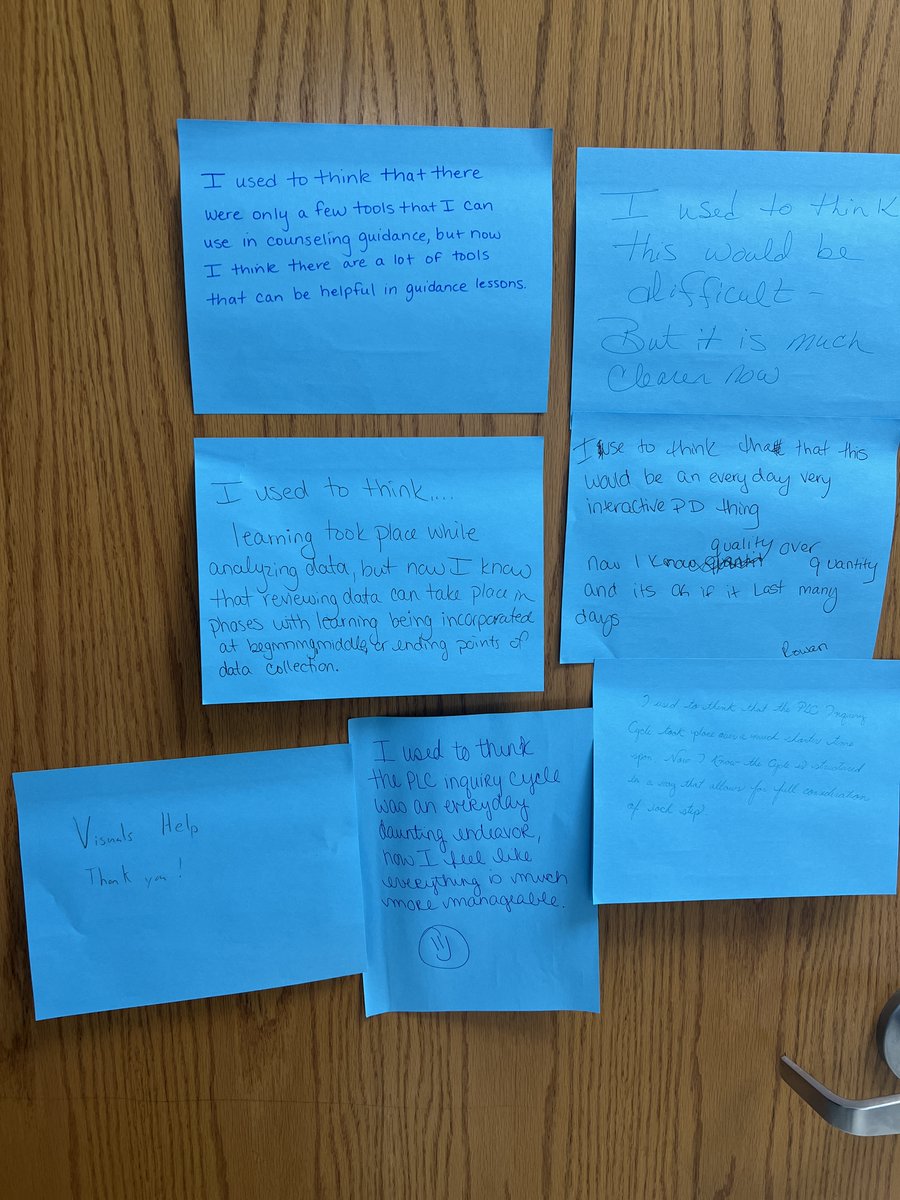 I used to think that there
were only a few tools that I can
use in counseling guidance, but now
I think there are a lot of tools
that can be helpful in guidance lessons.
I used to think
this would be
difficult -
But it is much
Clearer now
I used to think....
learning took place while
analyzing data, but now I know
that reviewing data can take place in
phases with learning being incorporated
at beginning, middle, or ending points of
data collection.
I use to think that that this
would be an everyday very
interactive PD thing
now I know quality over
quantity
and its ok if it last many
days
Rowan
Visuals Help
Thank you!
I used to think
the PLC inquiry cycle
was an everyday
daunting endeavor,
now I feel like
everything is much
more manageable.
I used to think that the PLC Inquiry
Cycle took place over a much shorter time
span. Now I know the Cycle is structured
in a way that allows for full consideration
of each step.